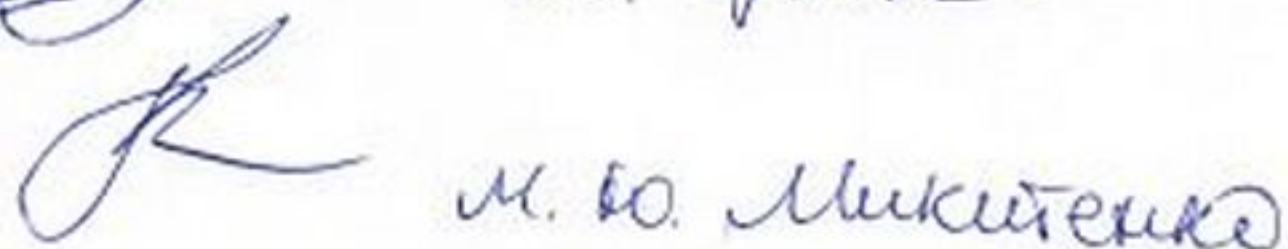 М. Ю. Микитенко